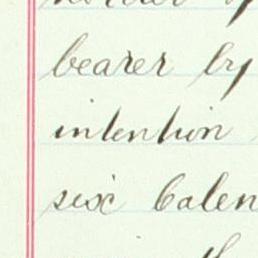 bearer by
intention
six Calen